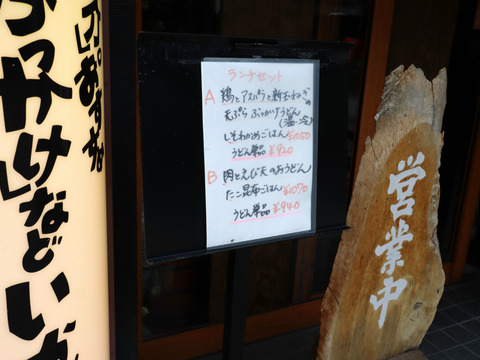 のおすすめ
ぶっかけなどいか
ランチセット
A 鶏とアスパラと新玉ねぎの
天ぷら ぶっかけうどん
(温・冷)
しそわかめごはん ¥1050
うどん単品 ¥920
B 肉とえび天のおうどん
たこ昆布ごはん ¥1070
うどん単品 ¥940
営業中